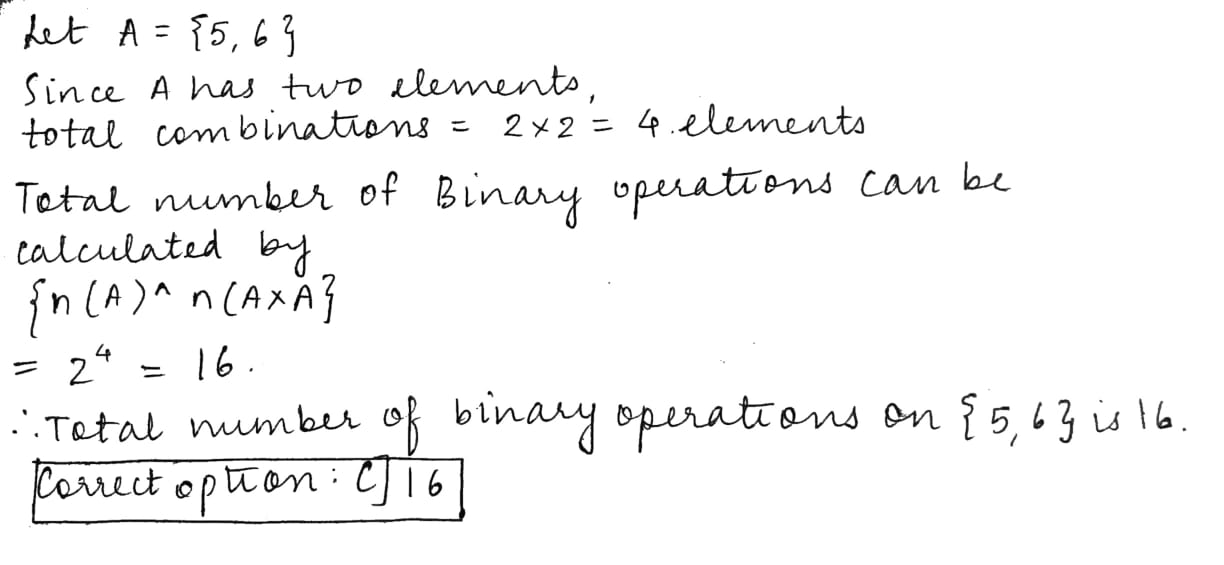 Let A = {5, 6}
Since A has two elements,
total combinations = 2 × 2 = 4 elements
Total number of Binary operations can be
calculated by
{n (A)^ n (A×A}
= 2⁴ = 16.
∴ Total number of binary operations on {5, 6} is 16.
Correct option : C] 16